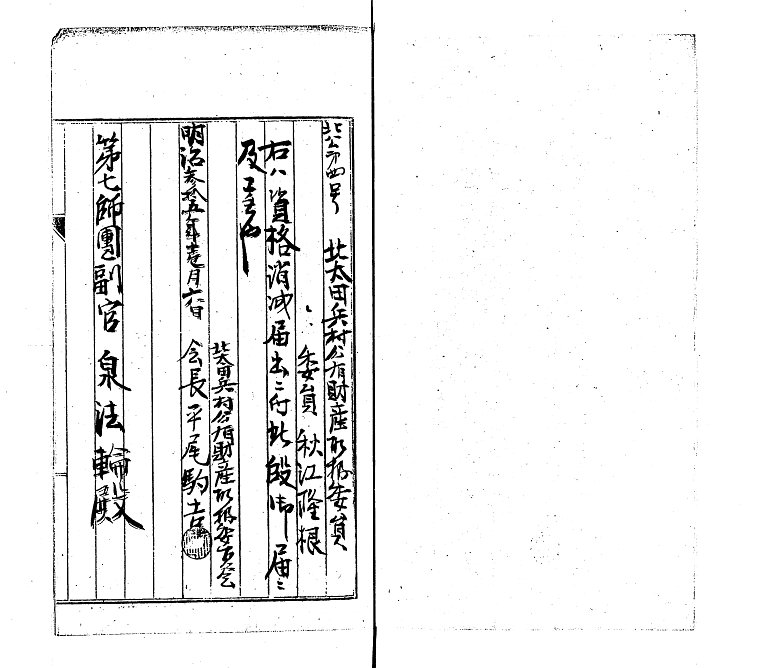 北公第四号
北太田兵村公有財産取扱委員
〃委員 秋江隆根
右ハ資格消滅届出ニ付此段御届ニ
及候也
明治参拾五年壱月六日
北太田兵村公有財産取扱委員会
会長 平尾駒吉
第七師團副官 泉法輪殿